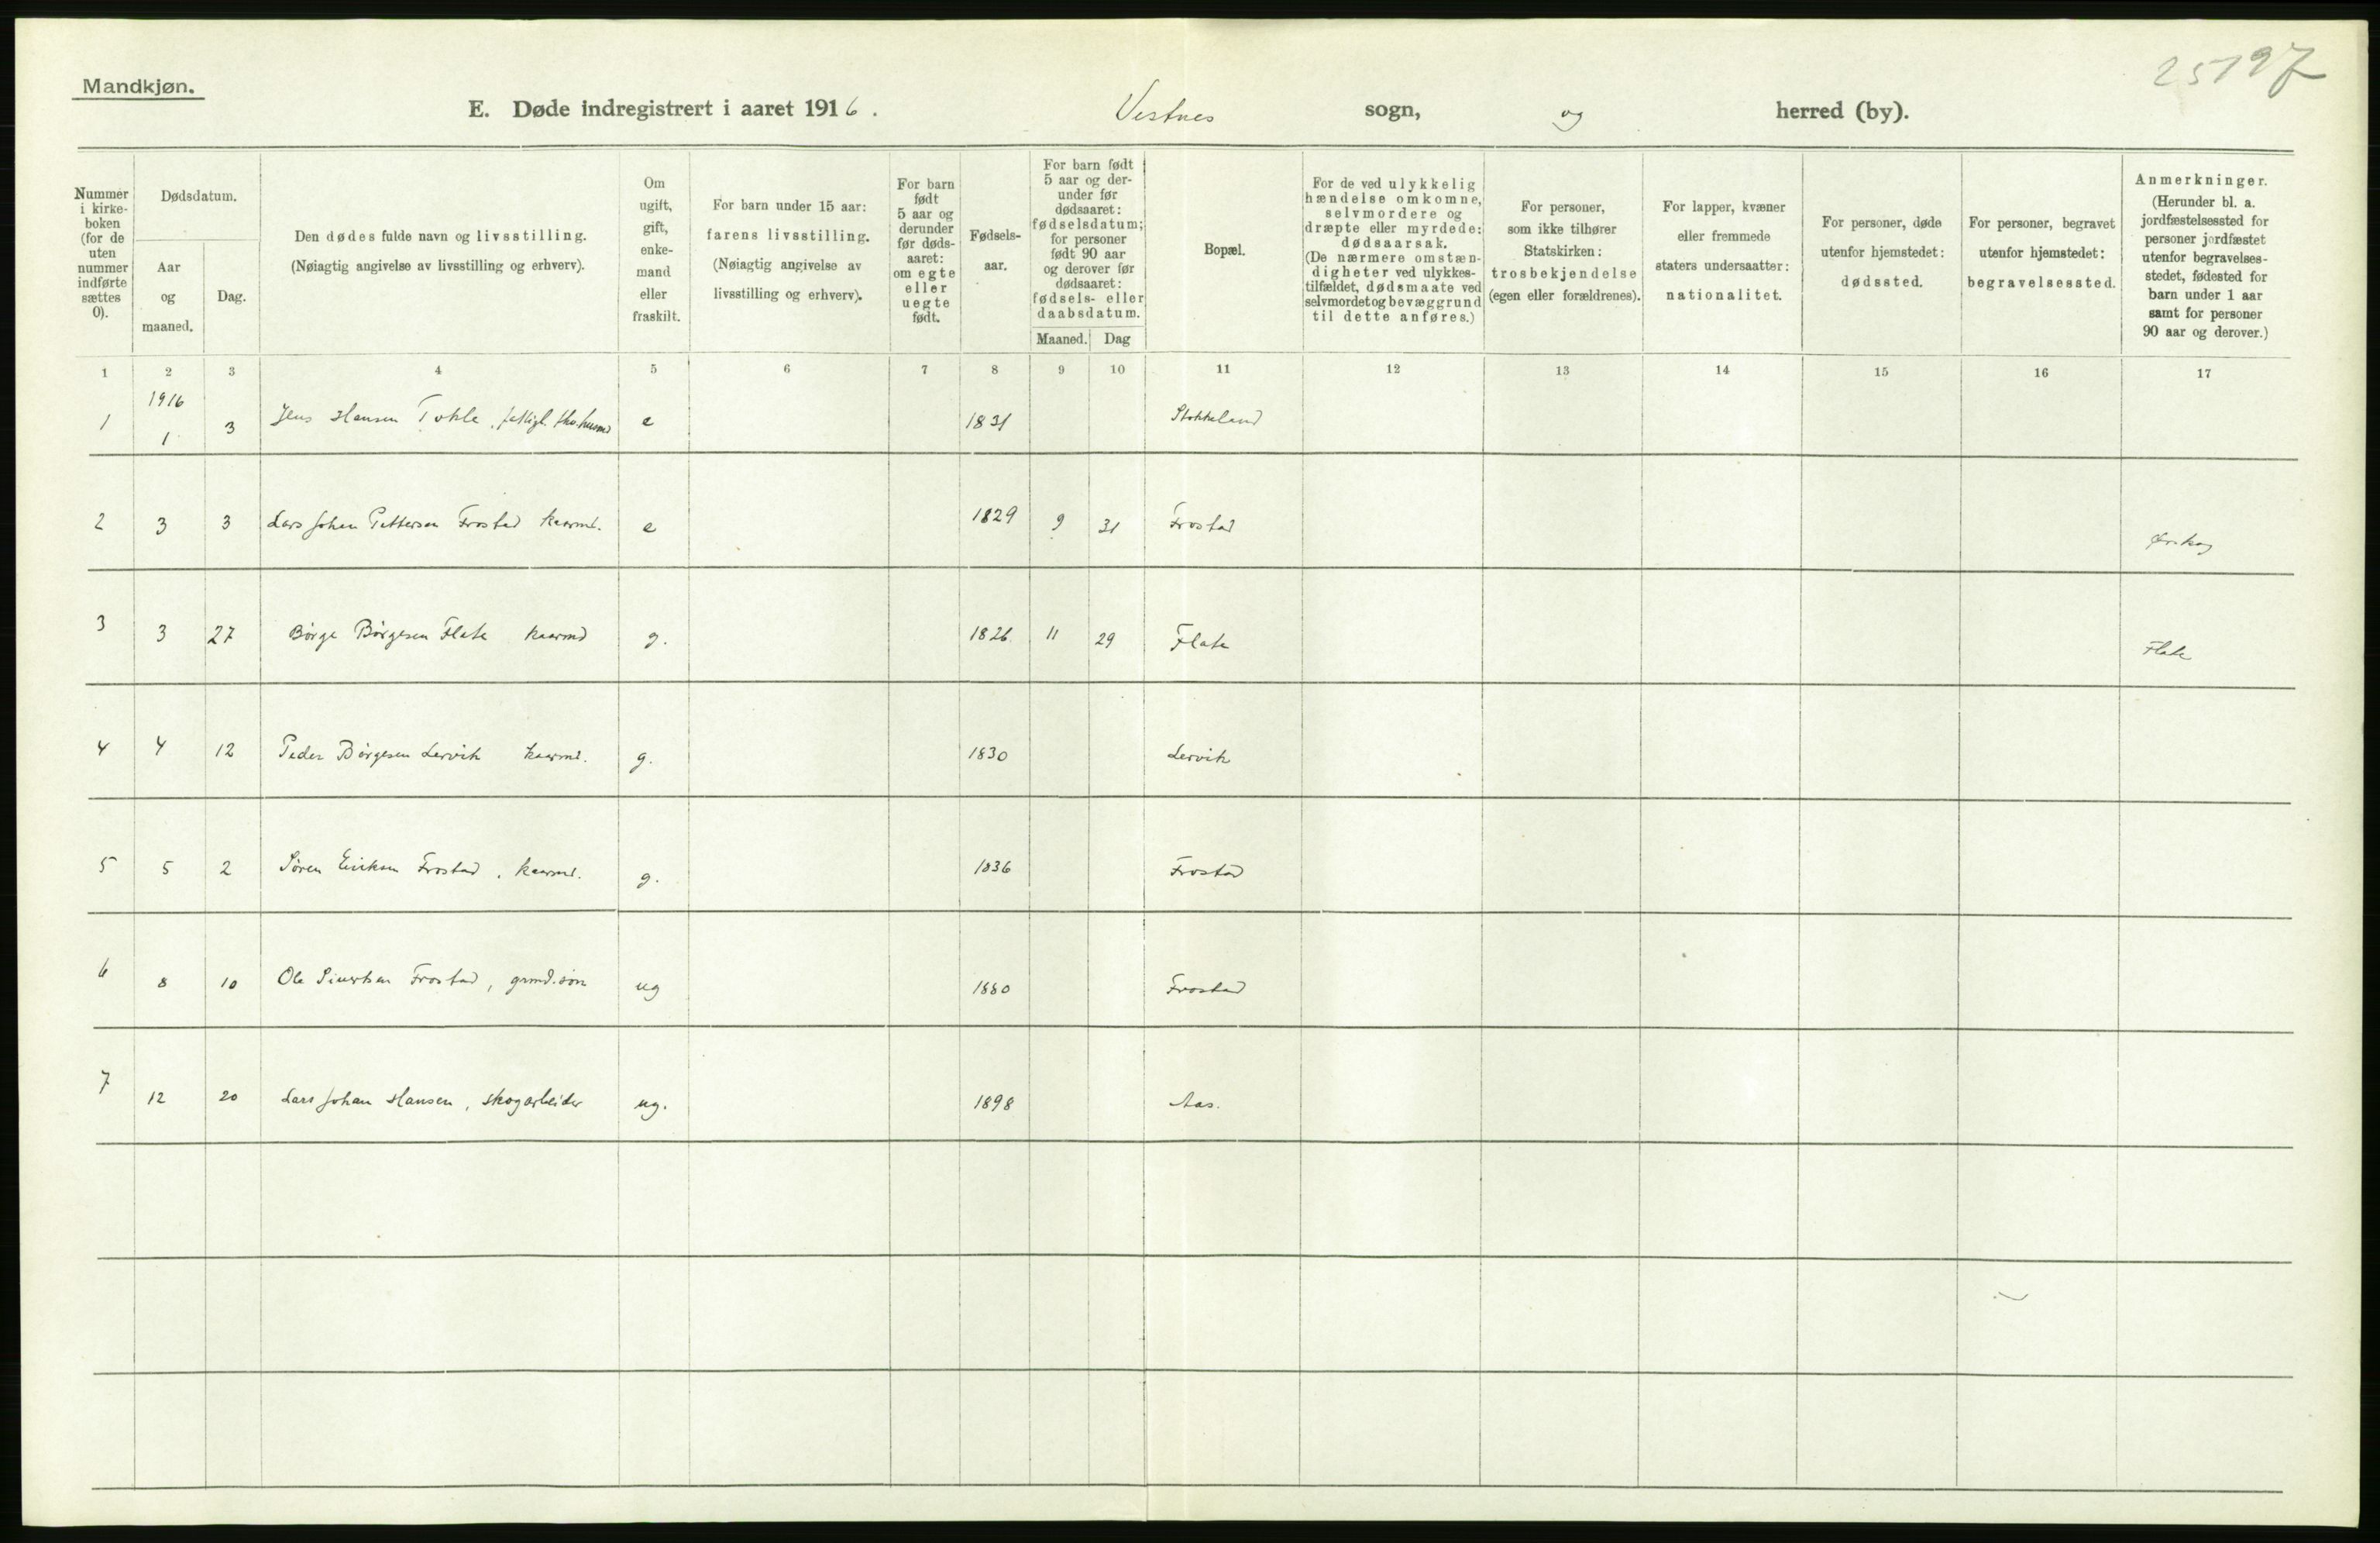 25127
Mandkjøn.
E. Døde indregistrert i aaret 1916. Vestnes sogn, og herred (by).
Nummer i kirke-boken (for de uten nummer indførte sættes 0).
Dødsdatum.
Aar og maaned.
Dag.
Den dødes fulde navn og livsstilling.
(Nøiagtig angivelse av livsstilling og erhverv).
Om ugift, gift, enke-mand eller fraskilt.
For barn under 15 aar:
farens livsstilling.
(Nøiagtig angivelse av
livsstilling og erhverv).
For barn født 5 aar og derunder før døds-aaret: om egte eller uegte født.
Fødsels-aar.
For barn født 5 aar og der-under før dødsaaret: fødselsdatum; for personer født 90 aar og derover før dødsaaret: fødsels- eller daabsdatum.
Maaned. Dag
Bopæl.
For de ved ulykkelig hændelse omkomne, selvmordere og dræpte eller myrdede: dødsaarsak. (De nærmere omstæn-digheter ved ulykkes-tilfældet, dødsmaate ved selvmordet og bevæggrund til dette anføres.)
For personer, som ikke tilhører Statskirken: trosbekjendelse (egen eller forældrenes).
For lapper, kvæner eller fremmede staters undersaatter: nationalitet.
For personer, døde utenfor hjemstedet: dødssted.
For personer, begravet utenfor hjemstedet: begravelsessted.
Anmerkninger.
(Herunder bl. a. jordfæstelsessted for personer jordfæstet utenfor begravelses-stedet, fødested for barn under 1 aar samt for personer 90 aar og derover.)
1 2 3 4 5 6 7 8 9 10 11 12 13 14 15 16 17
1916
1 1 3 Jens Hansen Tokle, e 1831 Stokkeland
2 3 3 Lars Johan Pettersen Frostad kaarmd. e 1829 9 31 Frostad Ørskog
3 3 27 Børge Børgesen Flate kaarmd g. 1826 11 29 Flate Flate
4 4 12 Peder Børgesen Lervik kaarmd. g. 1830 Lervik
5 5 2 Søren Eriksen Frostad, kaarmd. g. 1836 Frostad
6 8 10 Ole Sivertsen Frostad, grmd.søn ug 1880 Frostad
7 12 20 Lars Johan Hansen, skogarbeider ug. 1898 Aas.